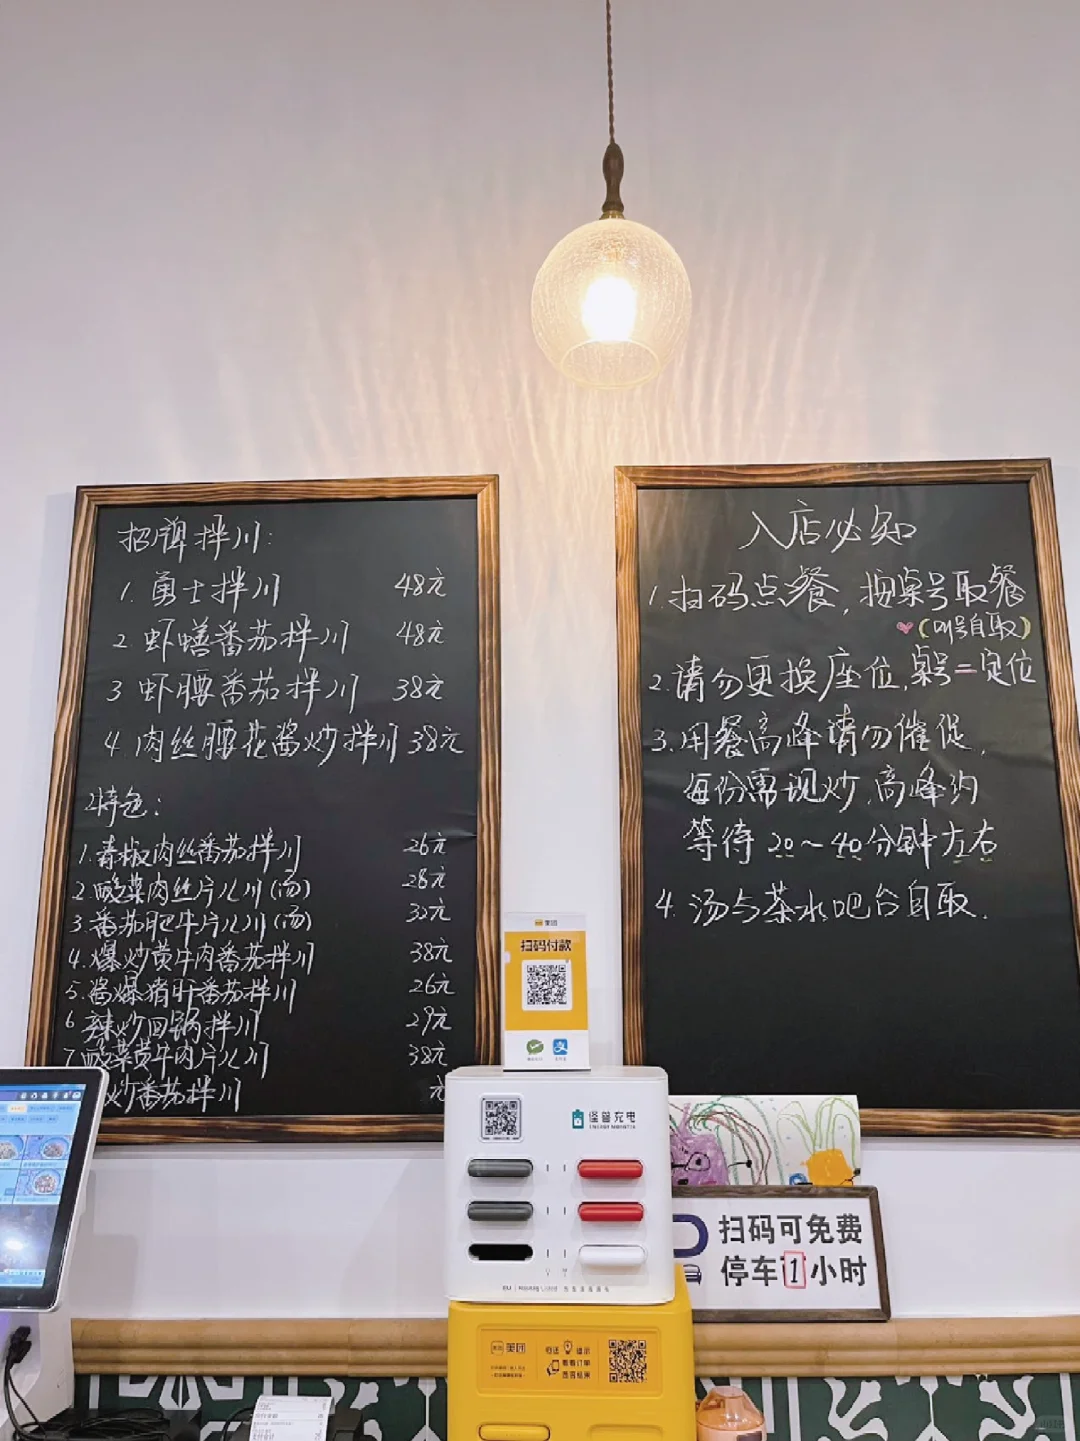 招牌拌川:
1. 勇士拌川 48元
2. 虾鳝番茄拌川 48元
3 虾腰番茄拌川 38元
4. 肉丝腰花酱炒拌川 38元
特色:
1.青椒肉丝番茄拌川 26元
2.酸菜肉丝片儿川(汤) 28元
3.番茄肥牛片儿川(汤)
4.爆炒黄牛肉番茄拌川 38元
5.酱爆猪肝番茄拌川 26元
6 辣炒回锅拌川 29元
7酸菜黄牛肉片儿川 38元
炒番茄拌川 元
入店必知
1.扫码点餐,按桌号取餐
(叫号自取)
2.请勿更换座位,桌号=定位
3.用餐高峰请勿催促,
每份需现炒,高峰约
等待20~40分钟左右
4.汤与茶水吧台自取.
美团
扫码付款
怪兽充电
ENERGY MONSTER
扫码可免费
停车1小时
美团